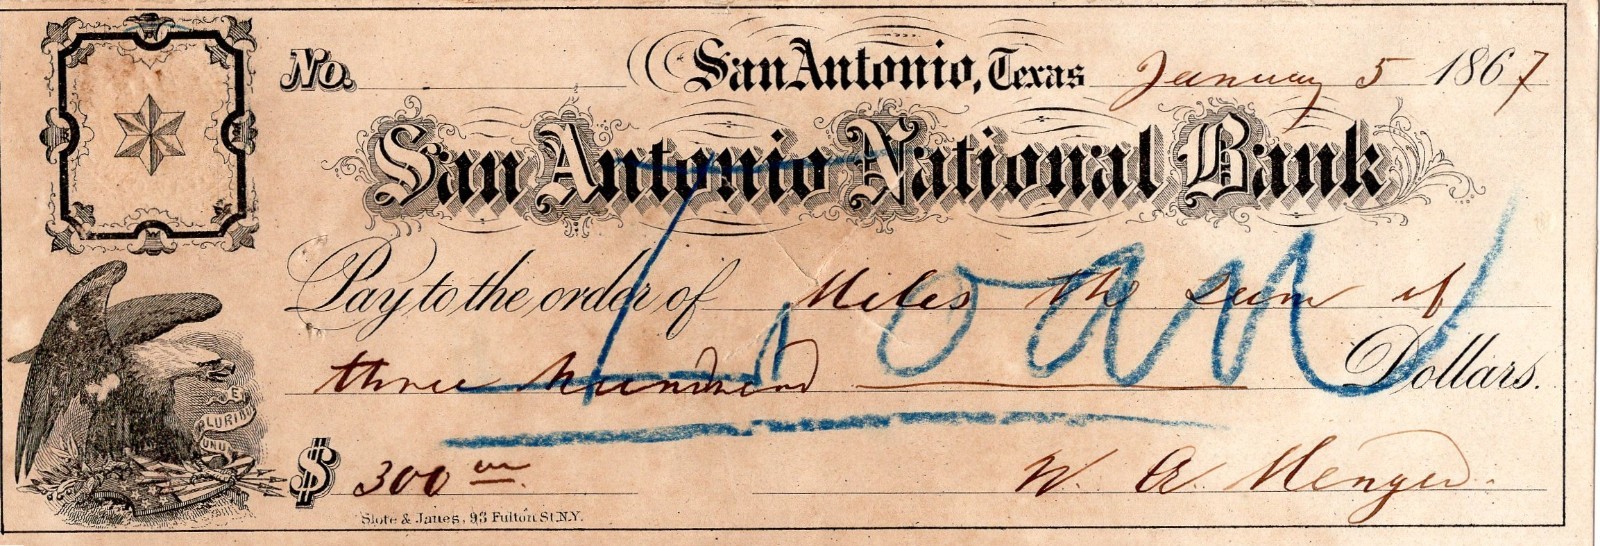 No. San Antonio, Texas January 5 1867
San Antonio National Bank
Loan
Pay to the order of Miles the sum of
three hundred Dollars.
$ 300
W. A. Menger
E
PLURIBU
UNU
Slote & Janes, 93 Fulton St. N.Y.